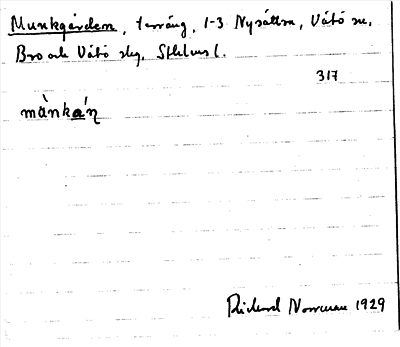 Munkgärden, terräng, 1-3 Nysättra, Vätö sn,
Bro och Vätö skg, Sthlms l.
317
mànka̱ń̥
Rickard Norrman 1929